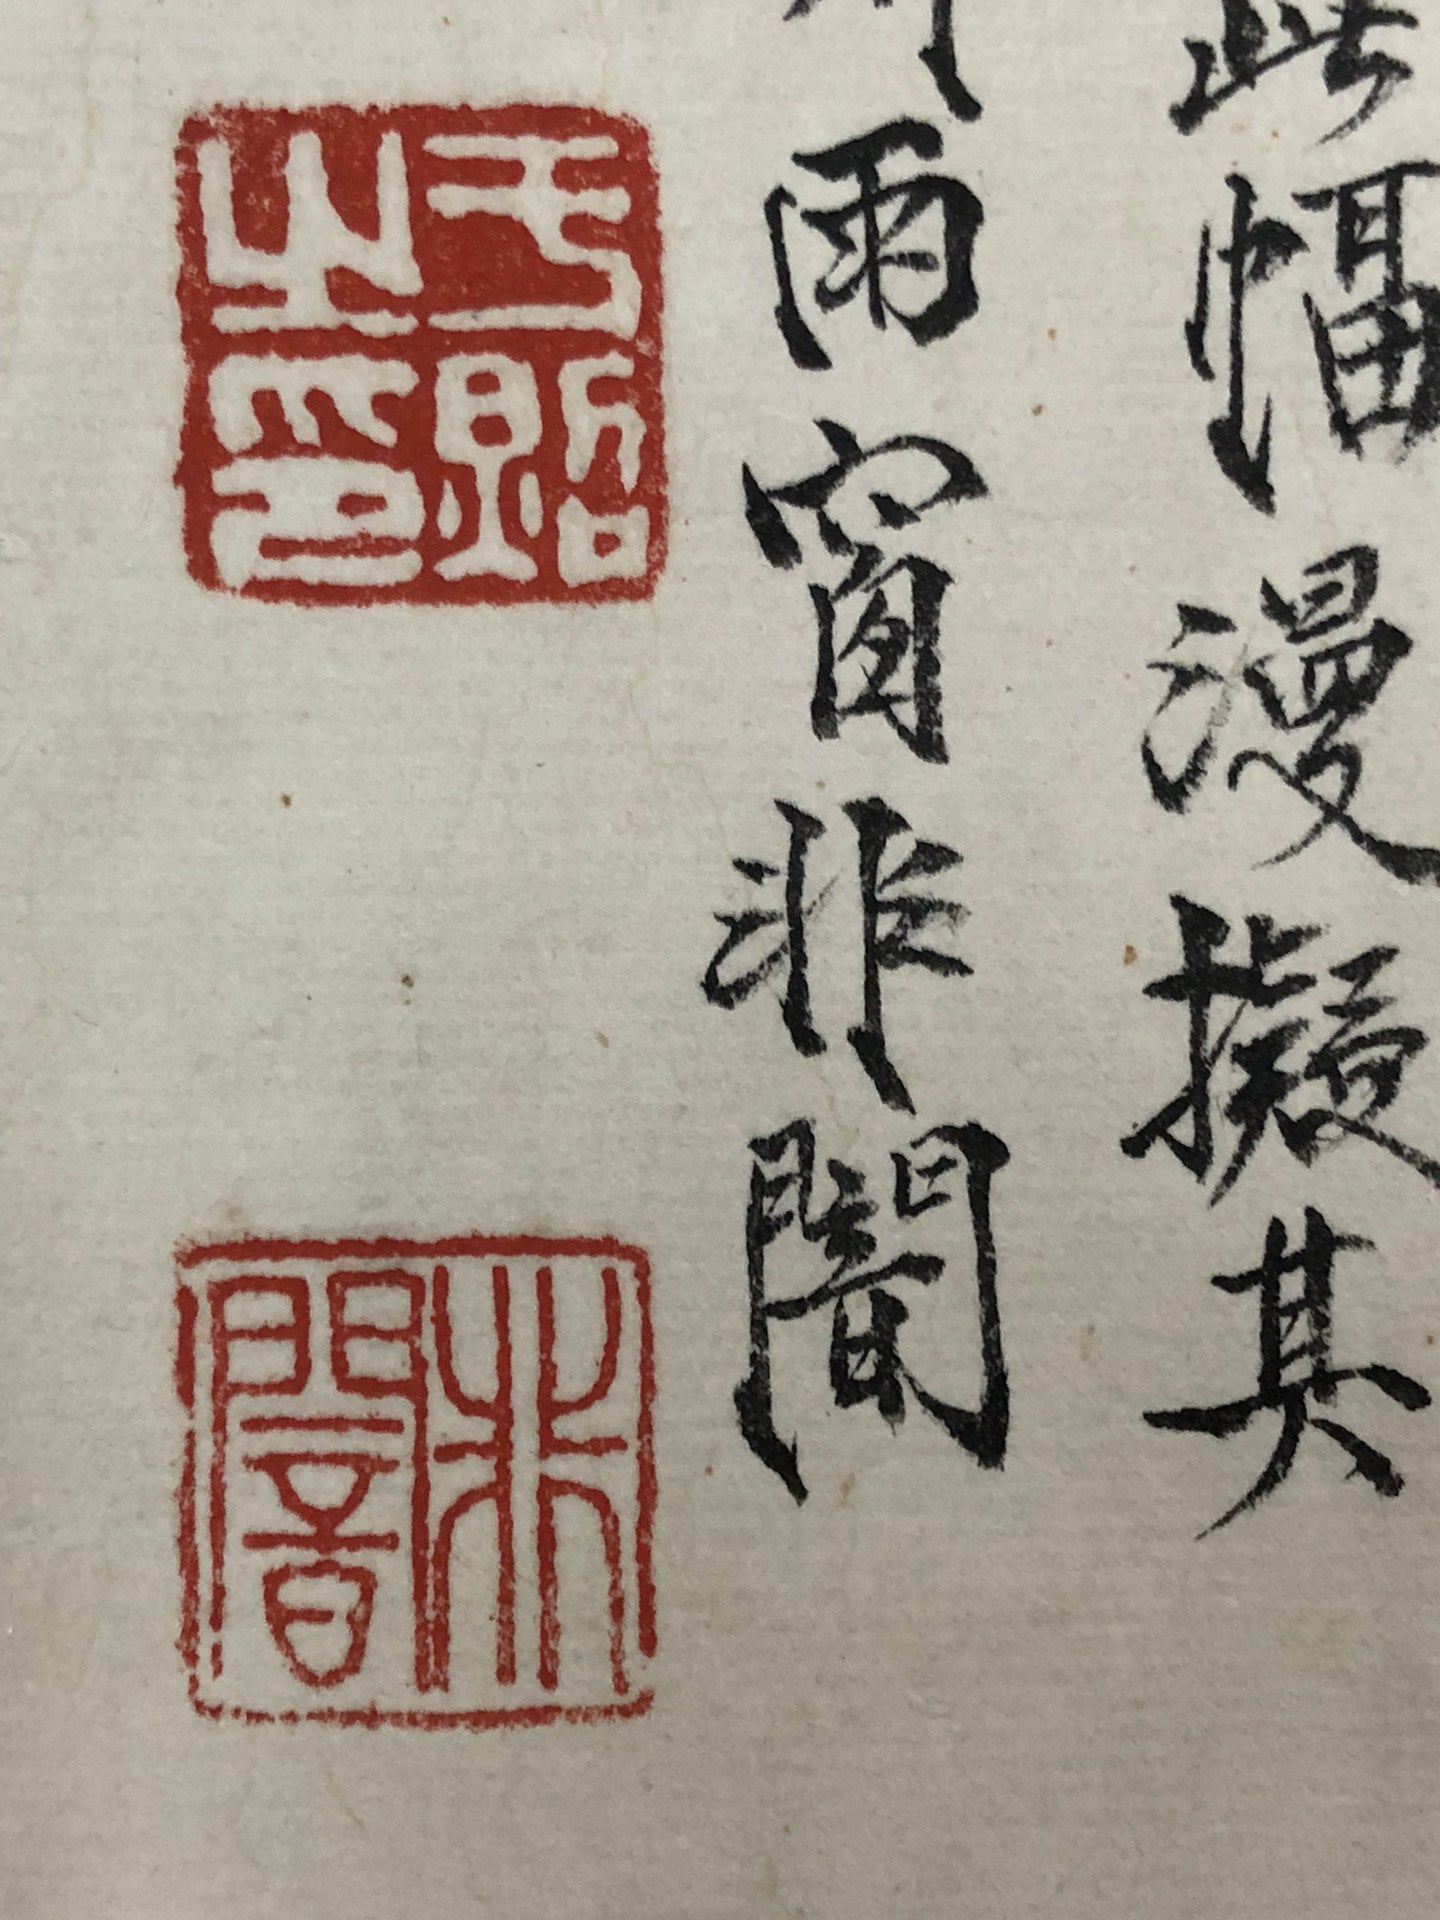 此幅漫擬其
雨窗非闇
于照之印
非闇